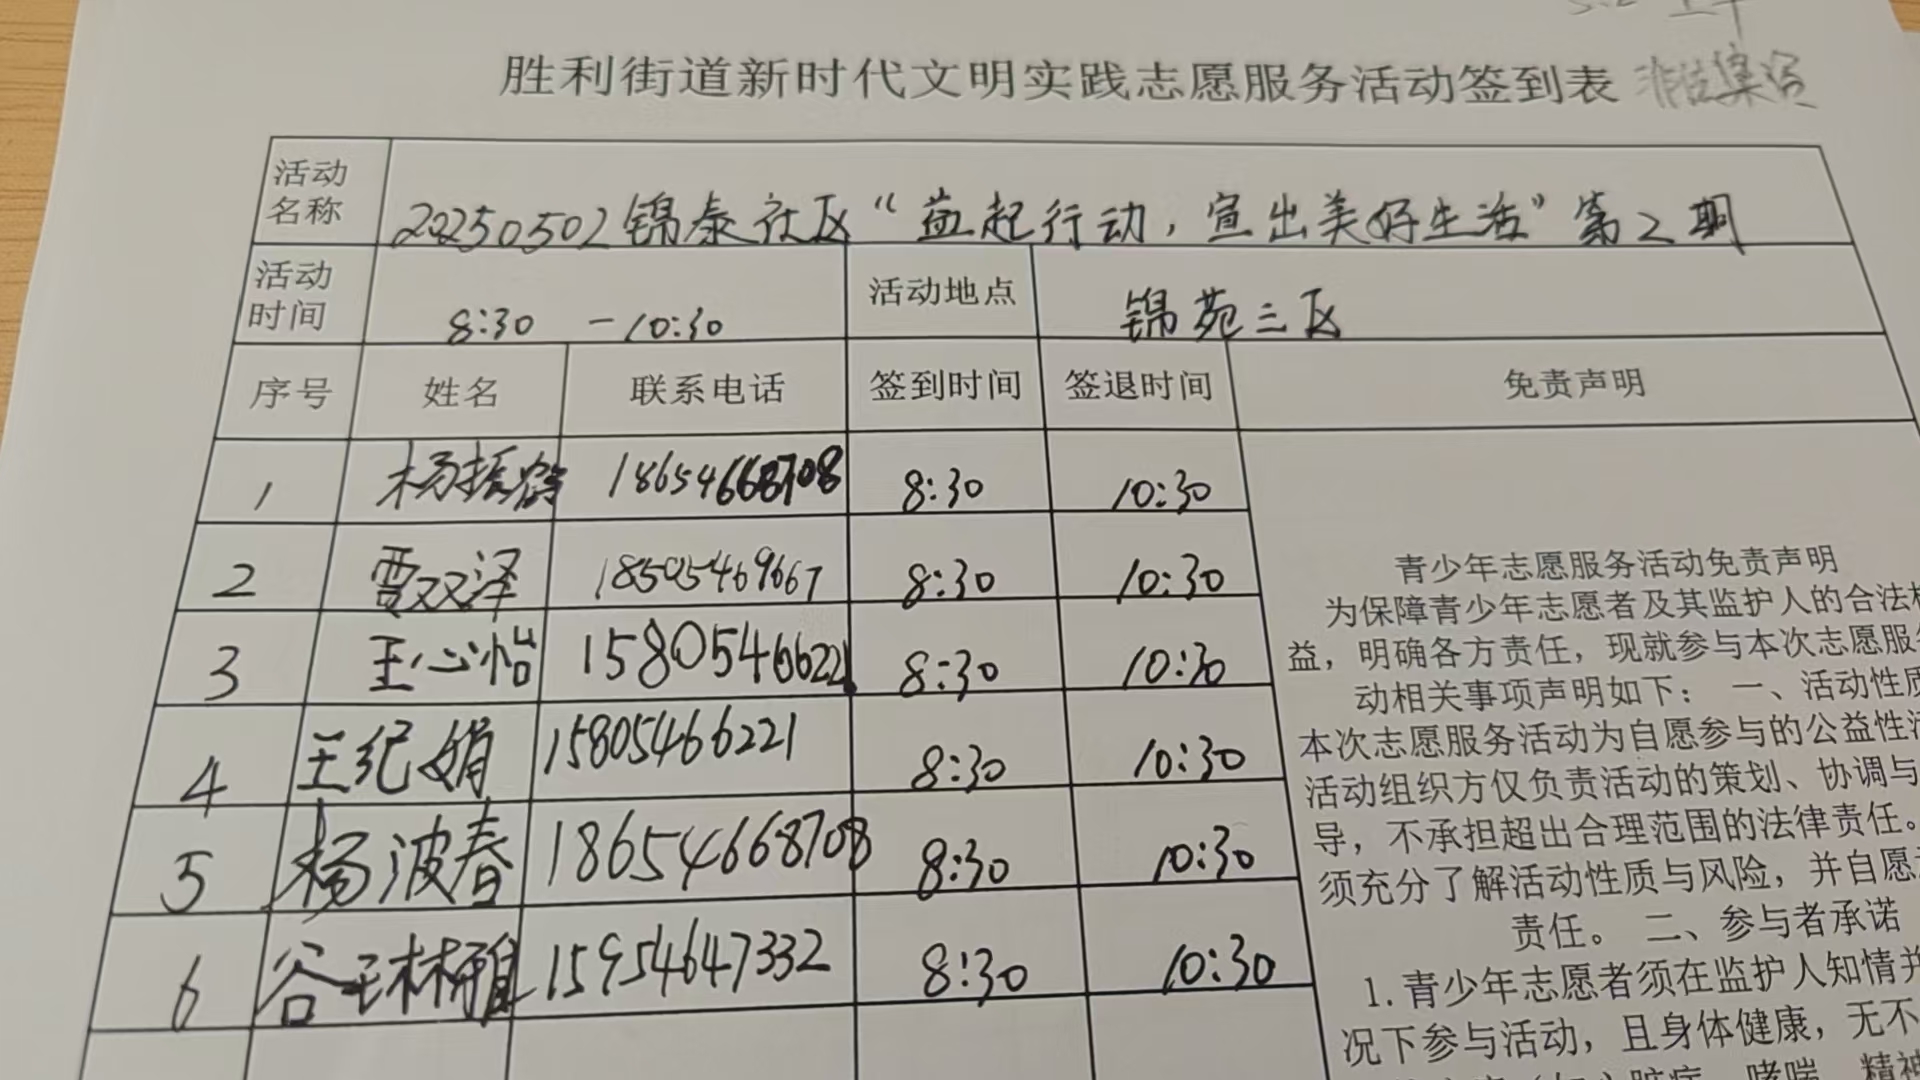 胜利街道新时代文明实践志愿服务活动签到表 非法集资
活动名称 20250502锦泰社区“益起行动，宣出美好生活”第2期
活动时间 8:30 -10:30 活动地点 锦苑三区
序号 姓名 联系电话 签到时间 签退时间 免责声明
1 杨振 18654668708 8:30 10:30
2 贾双泽 18505469667 8:30 10:30
3 王心怡 15805466221 8:30 10:30
4 王纪娟 15805466221 8:30 10:30
5 杨波春 18654668708 8:30 10:30
6 谷 15954647332 8:30 10:30
青少年志愿服务活动免责声明
为保障青少年志愿者及其监护人的合法权
益，明确各方责任，现就参与本次志愿服务
动相关事项声明如下： 一、活动性质
本次志愿服务活动为自愿参与的公益性活
活动组织方仅负责活动的策划、协调与
导，不承担超出合理范围的法律责任。
须充分了解活动性质与风险，并自愿
责任。 二、参与者承诺
1.青少年志愿者须在监护人知情并
况下参与活动，且身体健康，无不
脏病、哮喘、精神